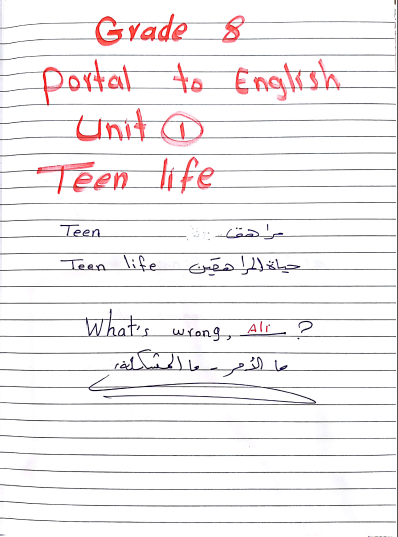 Grade 8
Portal to English
Unit 1
Teen life
Teen مراهق
Teen life حياة المراهقين
What's wrong, Ali ?
ما الأمر - ما المشكلة